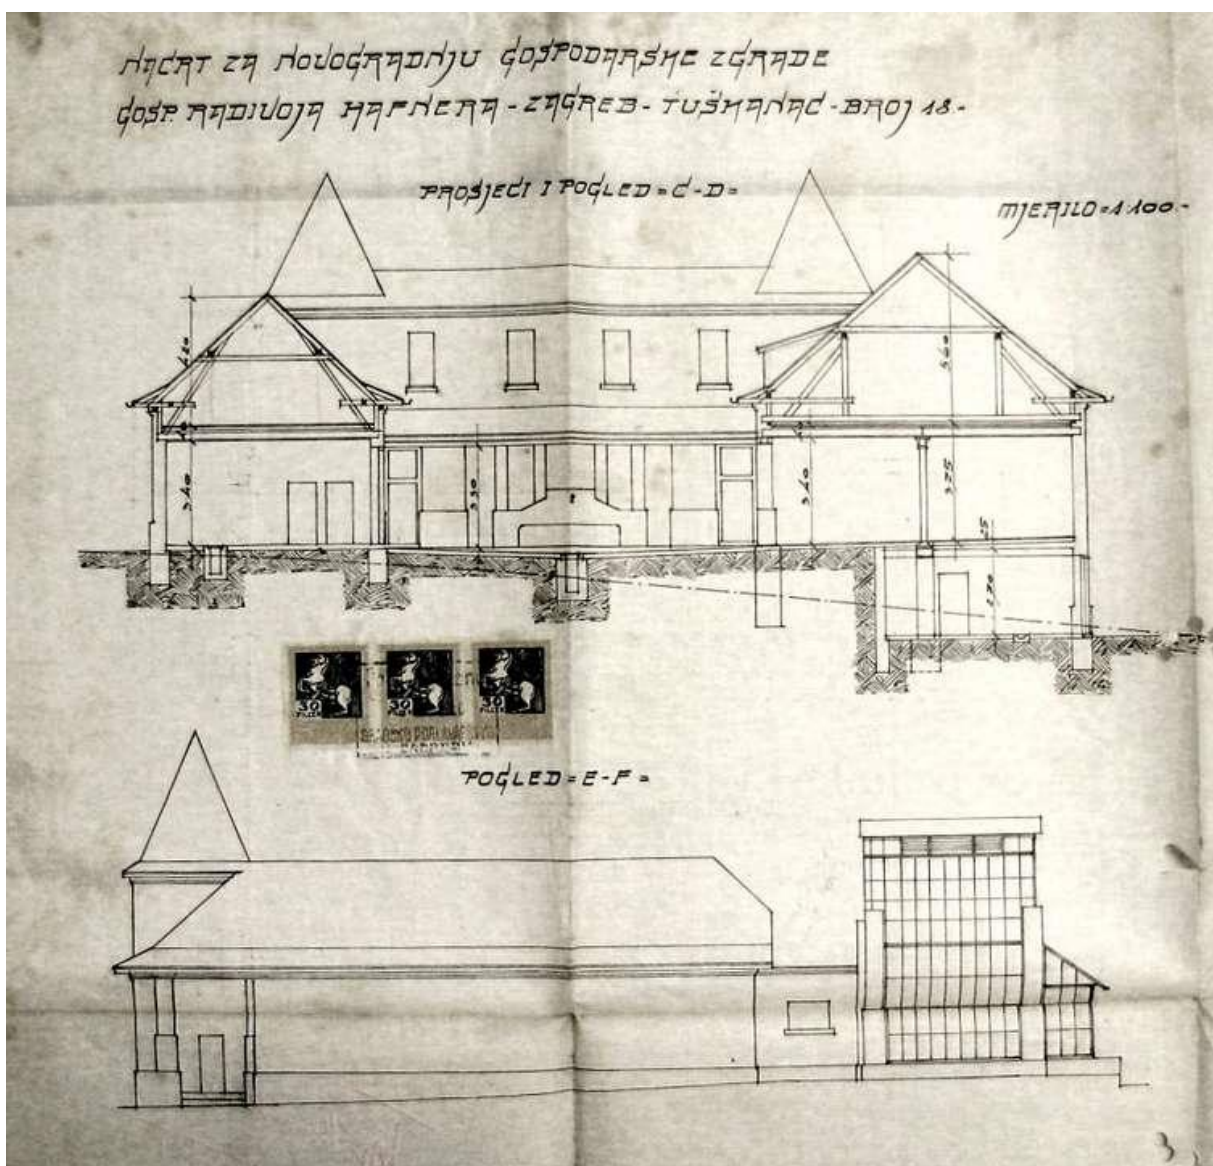 NACRT ZA NOVOGRADNJU GOSPODARSKE ZGRADE
GOSP. RADIVOJA HAFNERA - ZAGREB - TUŠKANAC - BROJ 18.-
PROSJECI I POGLED = C-D =
MJERILO = 1:100.-
420
560
340
330
340
375
25
270
30
30
30
POGLED = E-F =
3